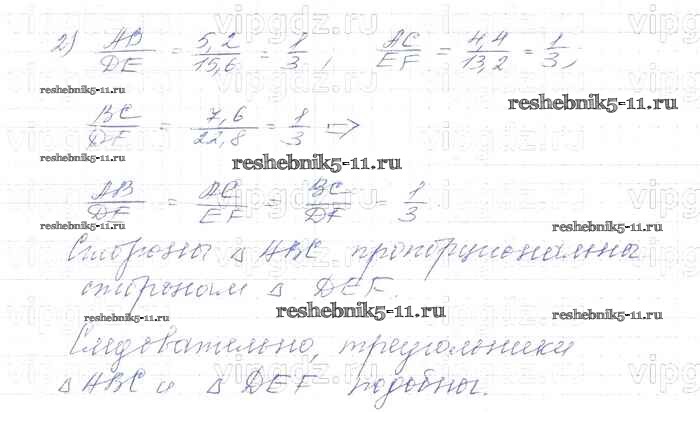 2) AB/DE = 5,2/15,6 = 1/3, AC/EF = 4,4/13,2 = 1/3,
BC/DF = 7,6/22,8 = 1/3 =>
AB/DE = AC/EF = BC/DF = 1/3
Стороны △ ABC пропорциональны
сторонам △ DEF.
Следовательно, треугольники
△ ABC и △ DEF подобны.
reshebnik5-11.ru
reshebnik5-11.ru
reshebnik5-11.ru
reshebnik5-11.ru
reshebnik5-11.ru
reshebnik5-11.ru
reshebnik5-11.ru
reshebnik5-11.ru
reshebnik5-11.ru
vipgdz.ru